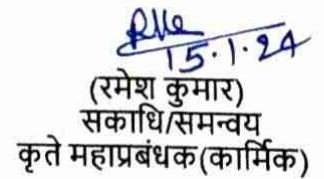 15.1.24
(रमेश कुमार)
सकाधि/समन्वय
कृते महाप्रबंधक(कार्मिक)